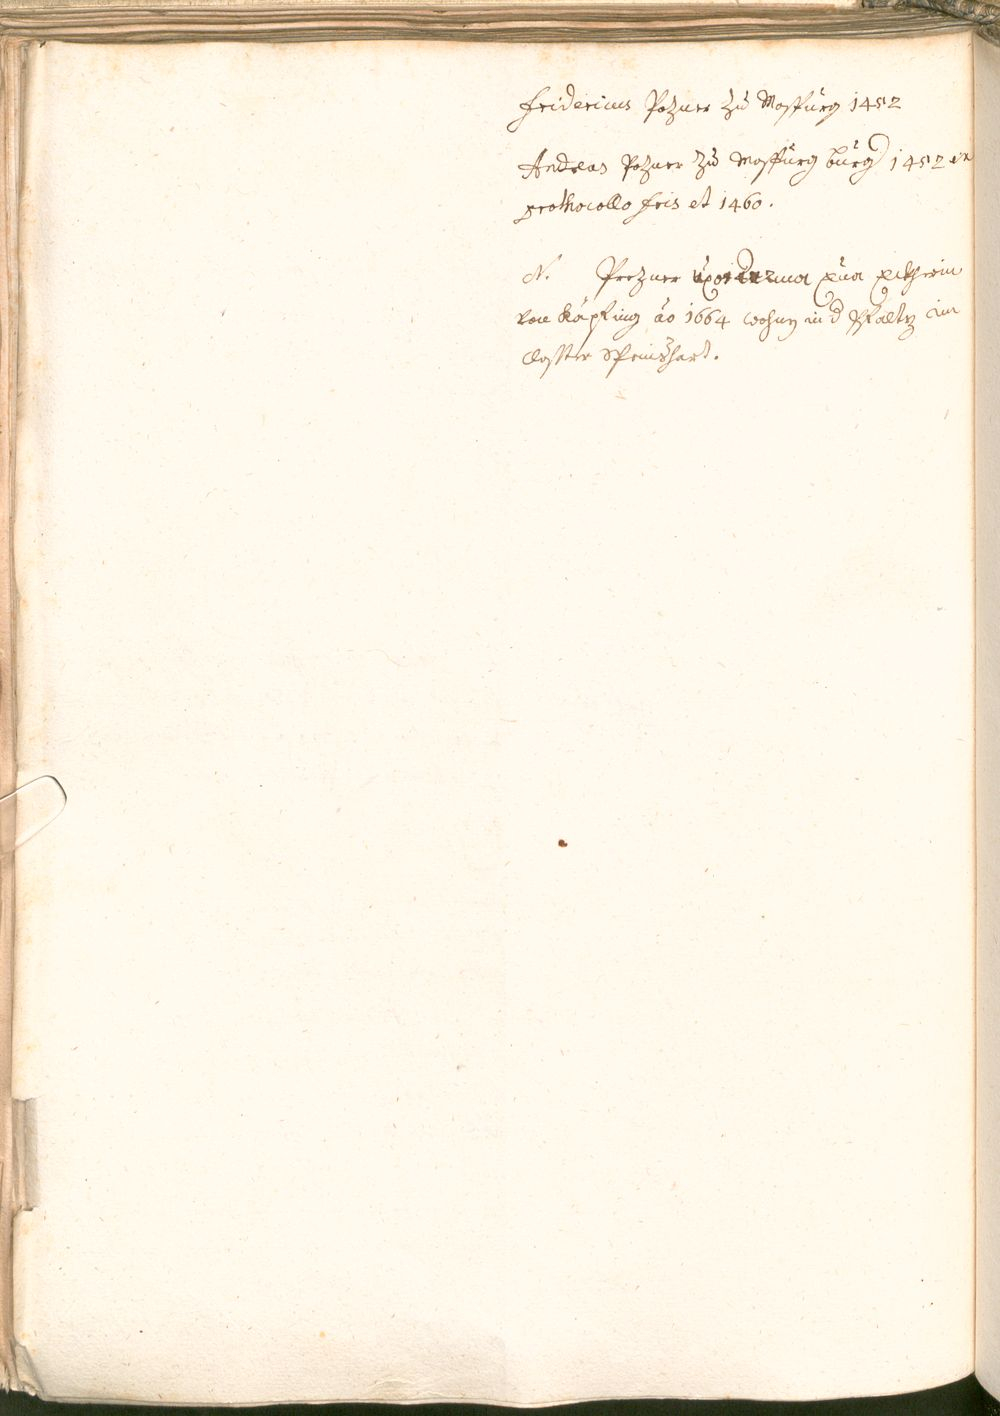 Fridericus Pozner zu Mospurg 1452
Andreas Pozner zu Mospurg burg 1452 ex
prothocollo fris et 1460.
N. Prezner uxor
von Käpfing ao 1664 wohnt in d Pfaltz im
Closter Speinshart.